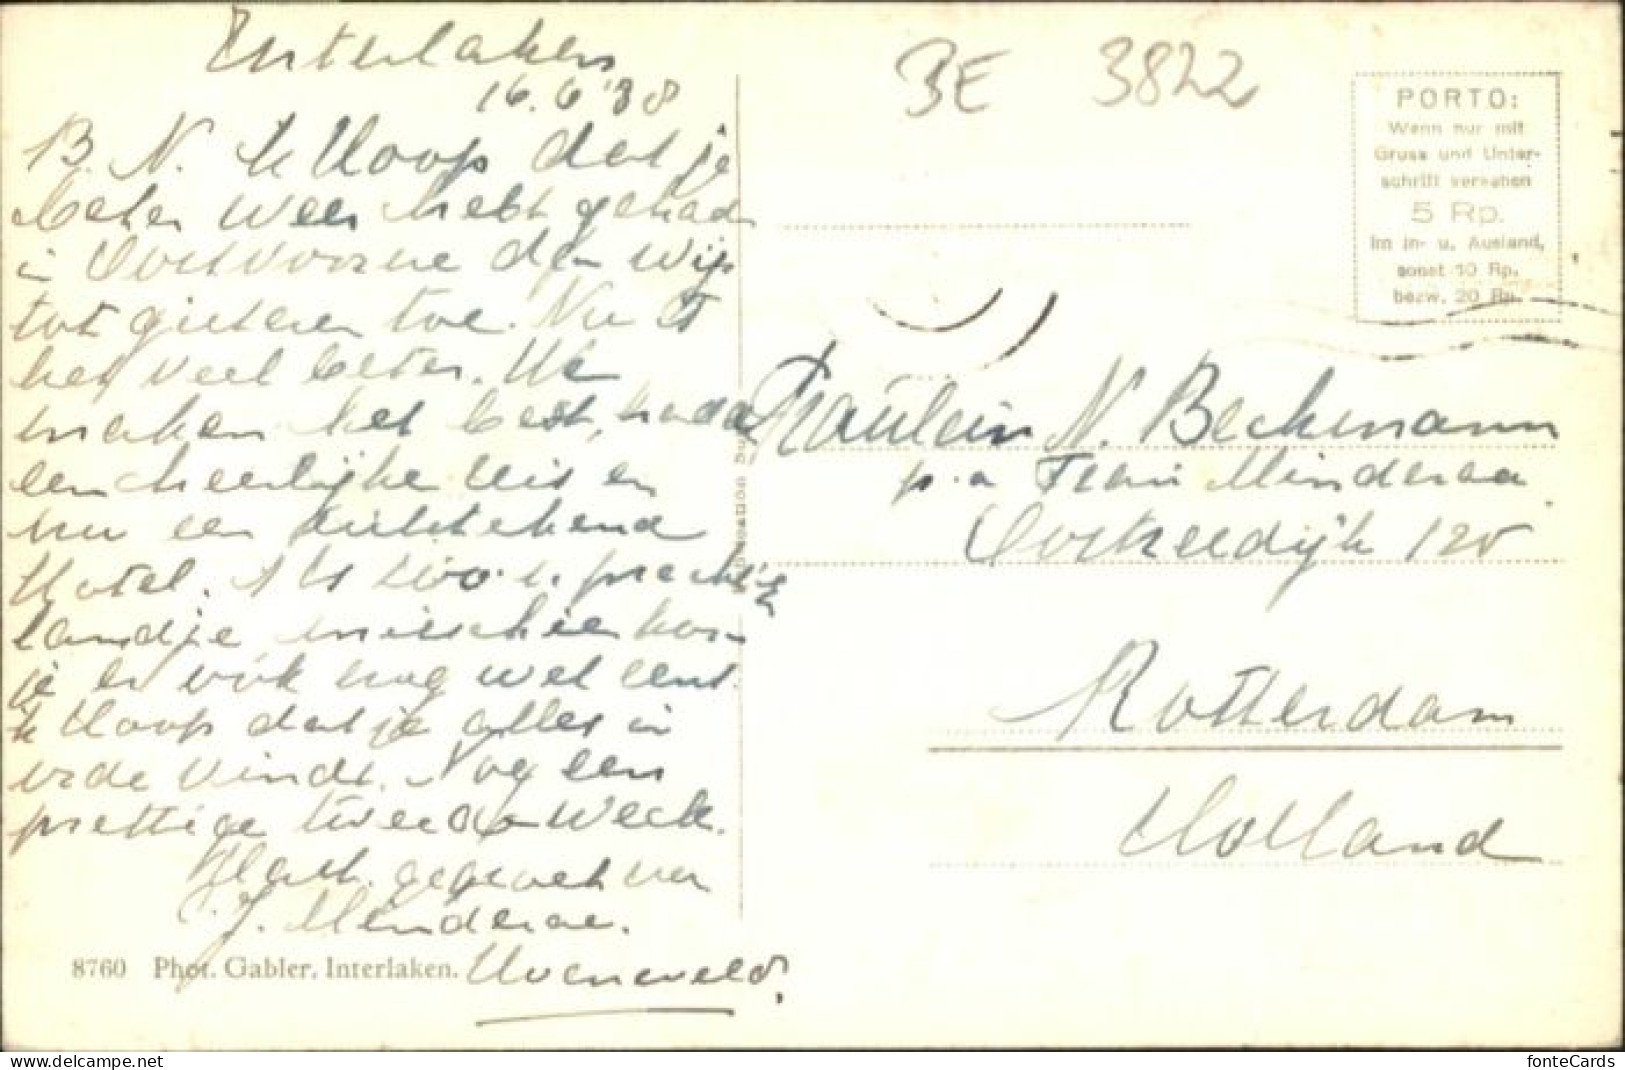 Interlaken
16.6.'38
B. N. Ik Hoop dat je
beter weer hebt gehad
in Oostvoorne dan wij
tot gisteren toe. Nu is
het veel beter. We
maken het best, hadden
een heerlijke reis en
nu een uitstekend
Hotel. 't Is zoo'n prachtig
landje misschien kom
je er ook nog wel eens.
Ik Hoop dat je alles in
orde vindt. Nog een
prettige tweede week.
Hart. gegroet van
J. Minderaa.
8760 Phot. Gabler, Interlaken.
BE 3822
PORTO:
Wenn nur mit
Gruss und Unter-
schrift versehen
5 Rp.
im In- u. Ausland,
sonst 10 Rp.
bezw. 20 Rp.
Fräulein N. Beckmann
p.a Frau Minderaa
Oostzeedijk 120
Rotterdam
Holland
www.delcampe.net
fonteCards